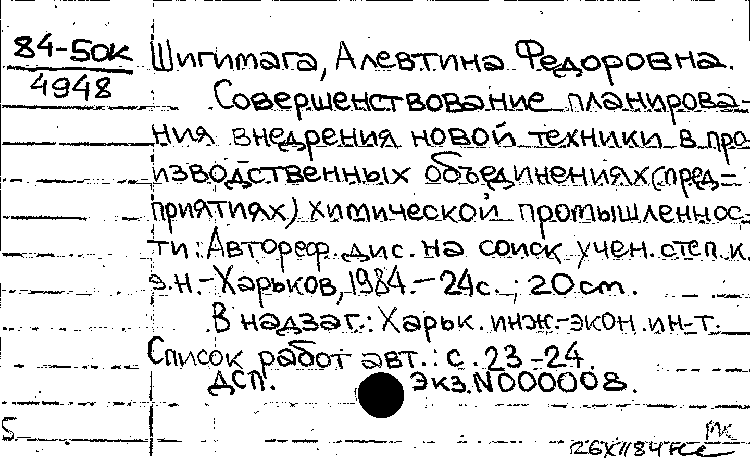 84-50к
4948
Шигимага, Алевтина Федоровна.
Совершенствование планирова-
ния внедрения новой техники в про
изводственных объединениях (пред-
приятиях) химической промышленнос-
ти: Автореф. дис. на соиск учен. степ. к.
э.н. - Харьков, 1984. - 24с.; 20 cm.
В надзаг.: Харьк. инж.-экон. ин-т.
Список работ авт.: с. 23-24.
ДСП. Экз. N000008.
5
РК